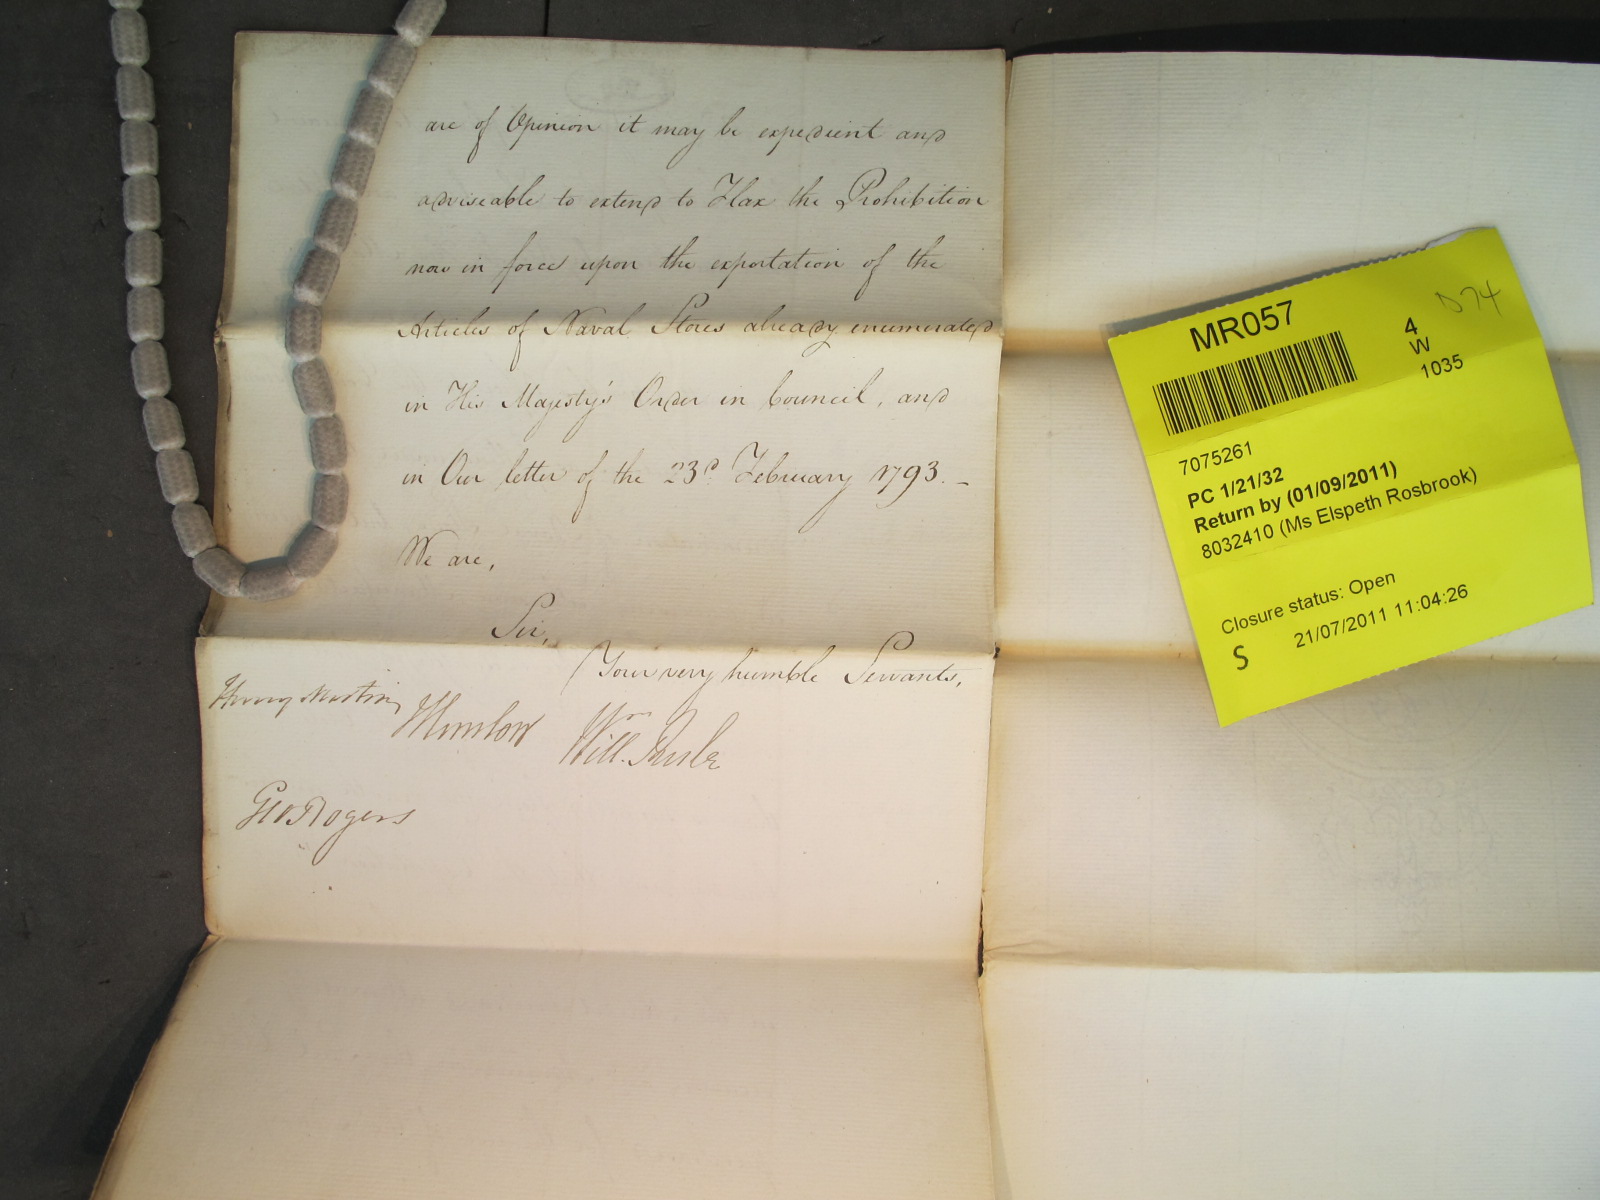 are of Opinion it may be expedient and
adviseable to extend to Flax the Prohibition
now in force upon the exportation of the
Articles of Naval Stores already enumerated
in His Majesty's Order in Council, and
in Our letter of the 23d. February 1793. –
We are,
Sir,
Your very humble Servants,
Henry Martin
Wm
Will.
Geo Rogers
MR057
D74
4
W
1035
7075261
PC 1/21/32
Return by (01/09/2011)
8032410 (Ms Elspeth Rosbrook)
Closure status: Open
S 21/07/2011 11:04:26